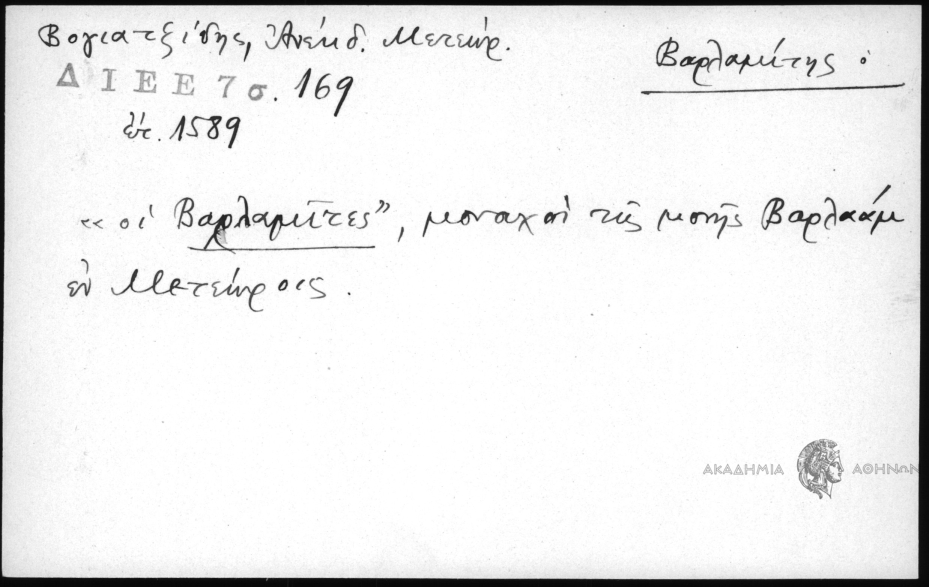 Βογιατζίδης, Ἀνέκδ. Μετεώρ.
Βαρλαμίτης ὁ
Δ Ι Ε Ε 7 σ. 169
ἔτ. 1589
«οἱ Βαρλαμῖτες”, μοναχοὶ τῆς μονῆς Βαρλαάμ
ἐν Μετεώροις.
ΑΚΑΔΗΜΙΑ ΑΘΗΝΩΝ